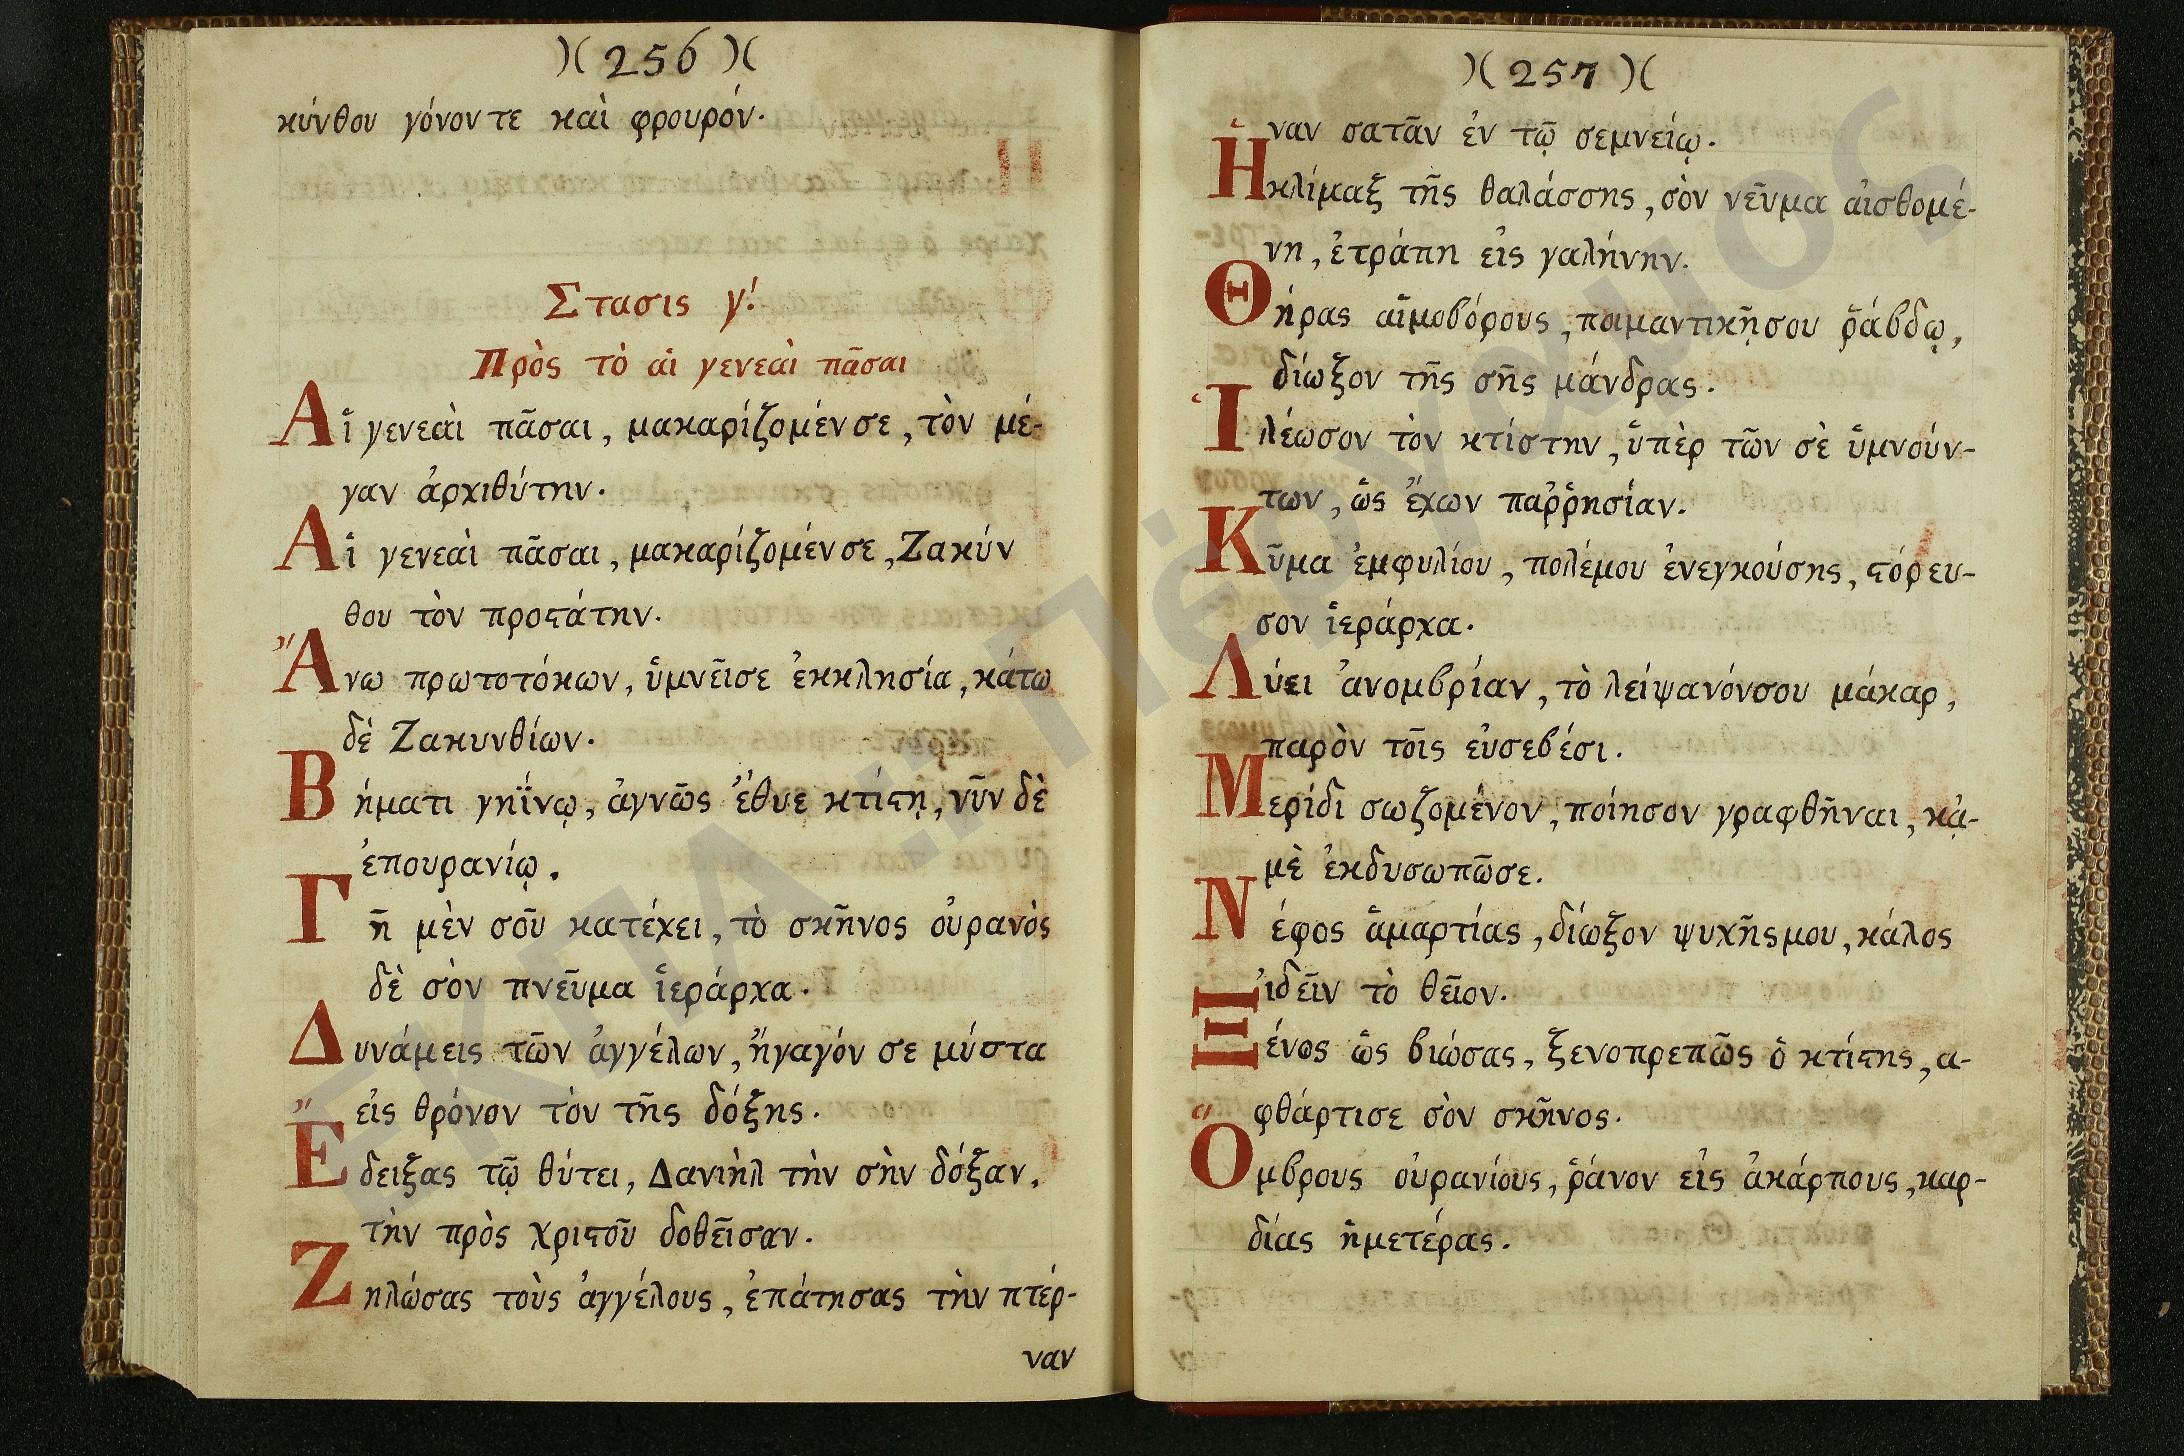 )( 256 )(
κύνθου γόνον τε καὶ φρουρόν.
Στασις γ!
Πρὸς τὸ αἱ γενεαὶ πᾶσαι
Αἵ γενεαὶ πᾶσαι, μακαρίζομέν σε, τὸν μέ-
γαν ἀρχιθύτην.
Αἱ γενεαὶ πᾶσαι, μακαρίζομέν σε, Ζακύν
θου τὸν προϛάτην.
Ἄνω πρωτοτόκων, ὑμνεῖσε ἐκκλησία, κάτω
δὲ Ζακυνθίων.
Βήματι γηΐνῳ, ἁγνῶς ἔθυε κτίϛῃ, νῦν δὲ
ἐπουρανίῳ.
Γῆ μὲν σοῦ κατέχει, τὸ σκῆνος οὐρανὸς
δὲ σὸν πνεῦμα ἱεράρχα.
Δυνάμεις τῶν ἀγγέλων, ἤγαγόν σε μύστα
εἰς θρόνον τὸν τῆς δόξης.
Ἔδειξας τῷ θύτει, Δανιὴλ τὴν σὴν δόξαν,
τὴν πρὸς χριϛοῦ δοθεῖσαν.
Ζηλώσας τοὺς ἀγγέλους, ἐπάτησας τὴν πτέρ-
ναν
)( 257 )(
ναν σατᾶν ἐν τῷ σεμνείῳ.
Ἡ κλίμαξ τῆς θαλάσσης, σὸν νεῦμα αἰσθομέ-
νη, ἐτράπη εἰς γαλήνην.
Θήρας αἱμοβόρους, ποιμαντικῇσου ῥάβδῳ,
δίωξον τῆς σῆς μάνδρας.
Ἱλέωσον τὸν κτίστην, ὑπὲρ τῶν σὲ ὑμνούν-
των, ὡς ἔχων παῤῥησίαν.
Κῦμα ἐμφυλίου, πολέμου ἐνεγκούσης, ϛόρευ-
σον ἱεράρχα.
Λύει ἀνομβρίαν, τὸ λείψανόνσου μάκαρ,
παρὸν τοῖς εὐσεβέσι.
Μερίδι σωζομένον, ποίησον γραφθῆναι, κᾀ-
μὲ ἐκδυσωπῶσε.
Νέφος ἁμαρτίας, δίωξον ψυχῆς μου, κάλος
ἰδεῖν τὸ θεῖον.
Ξένος ὡς βιώσας, ξενοπρεπῶς ὁ κτίϛης, α-
φθάρτισε σὸν σκῆνος.
Ὄμβρους οὐρανίους, ῥάνον εἰς ἀκάρπους, καρ-
δίας ἡμετέρας.
ΕΚΠΑ ... Πέργαμος